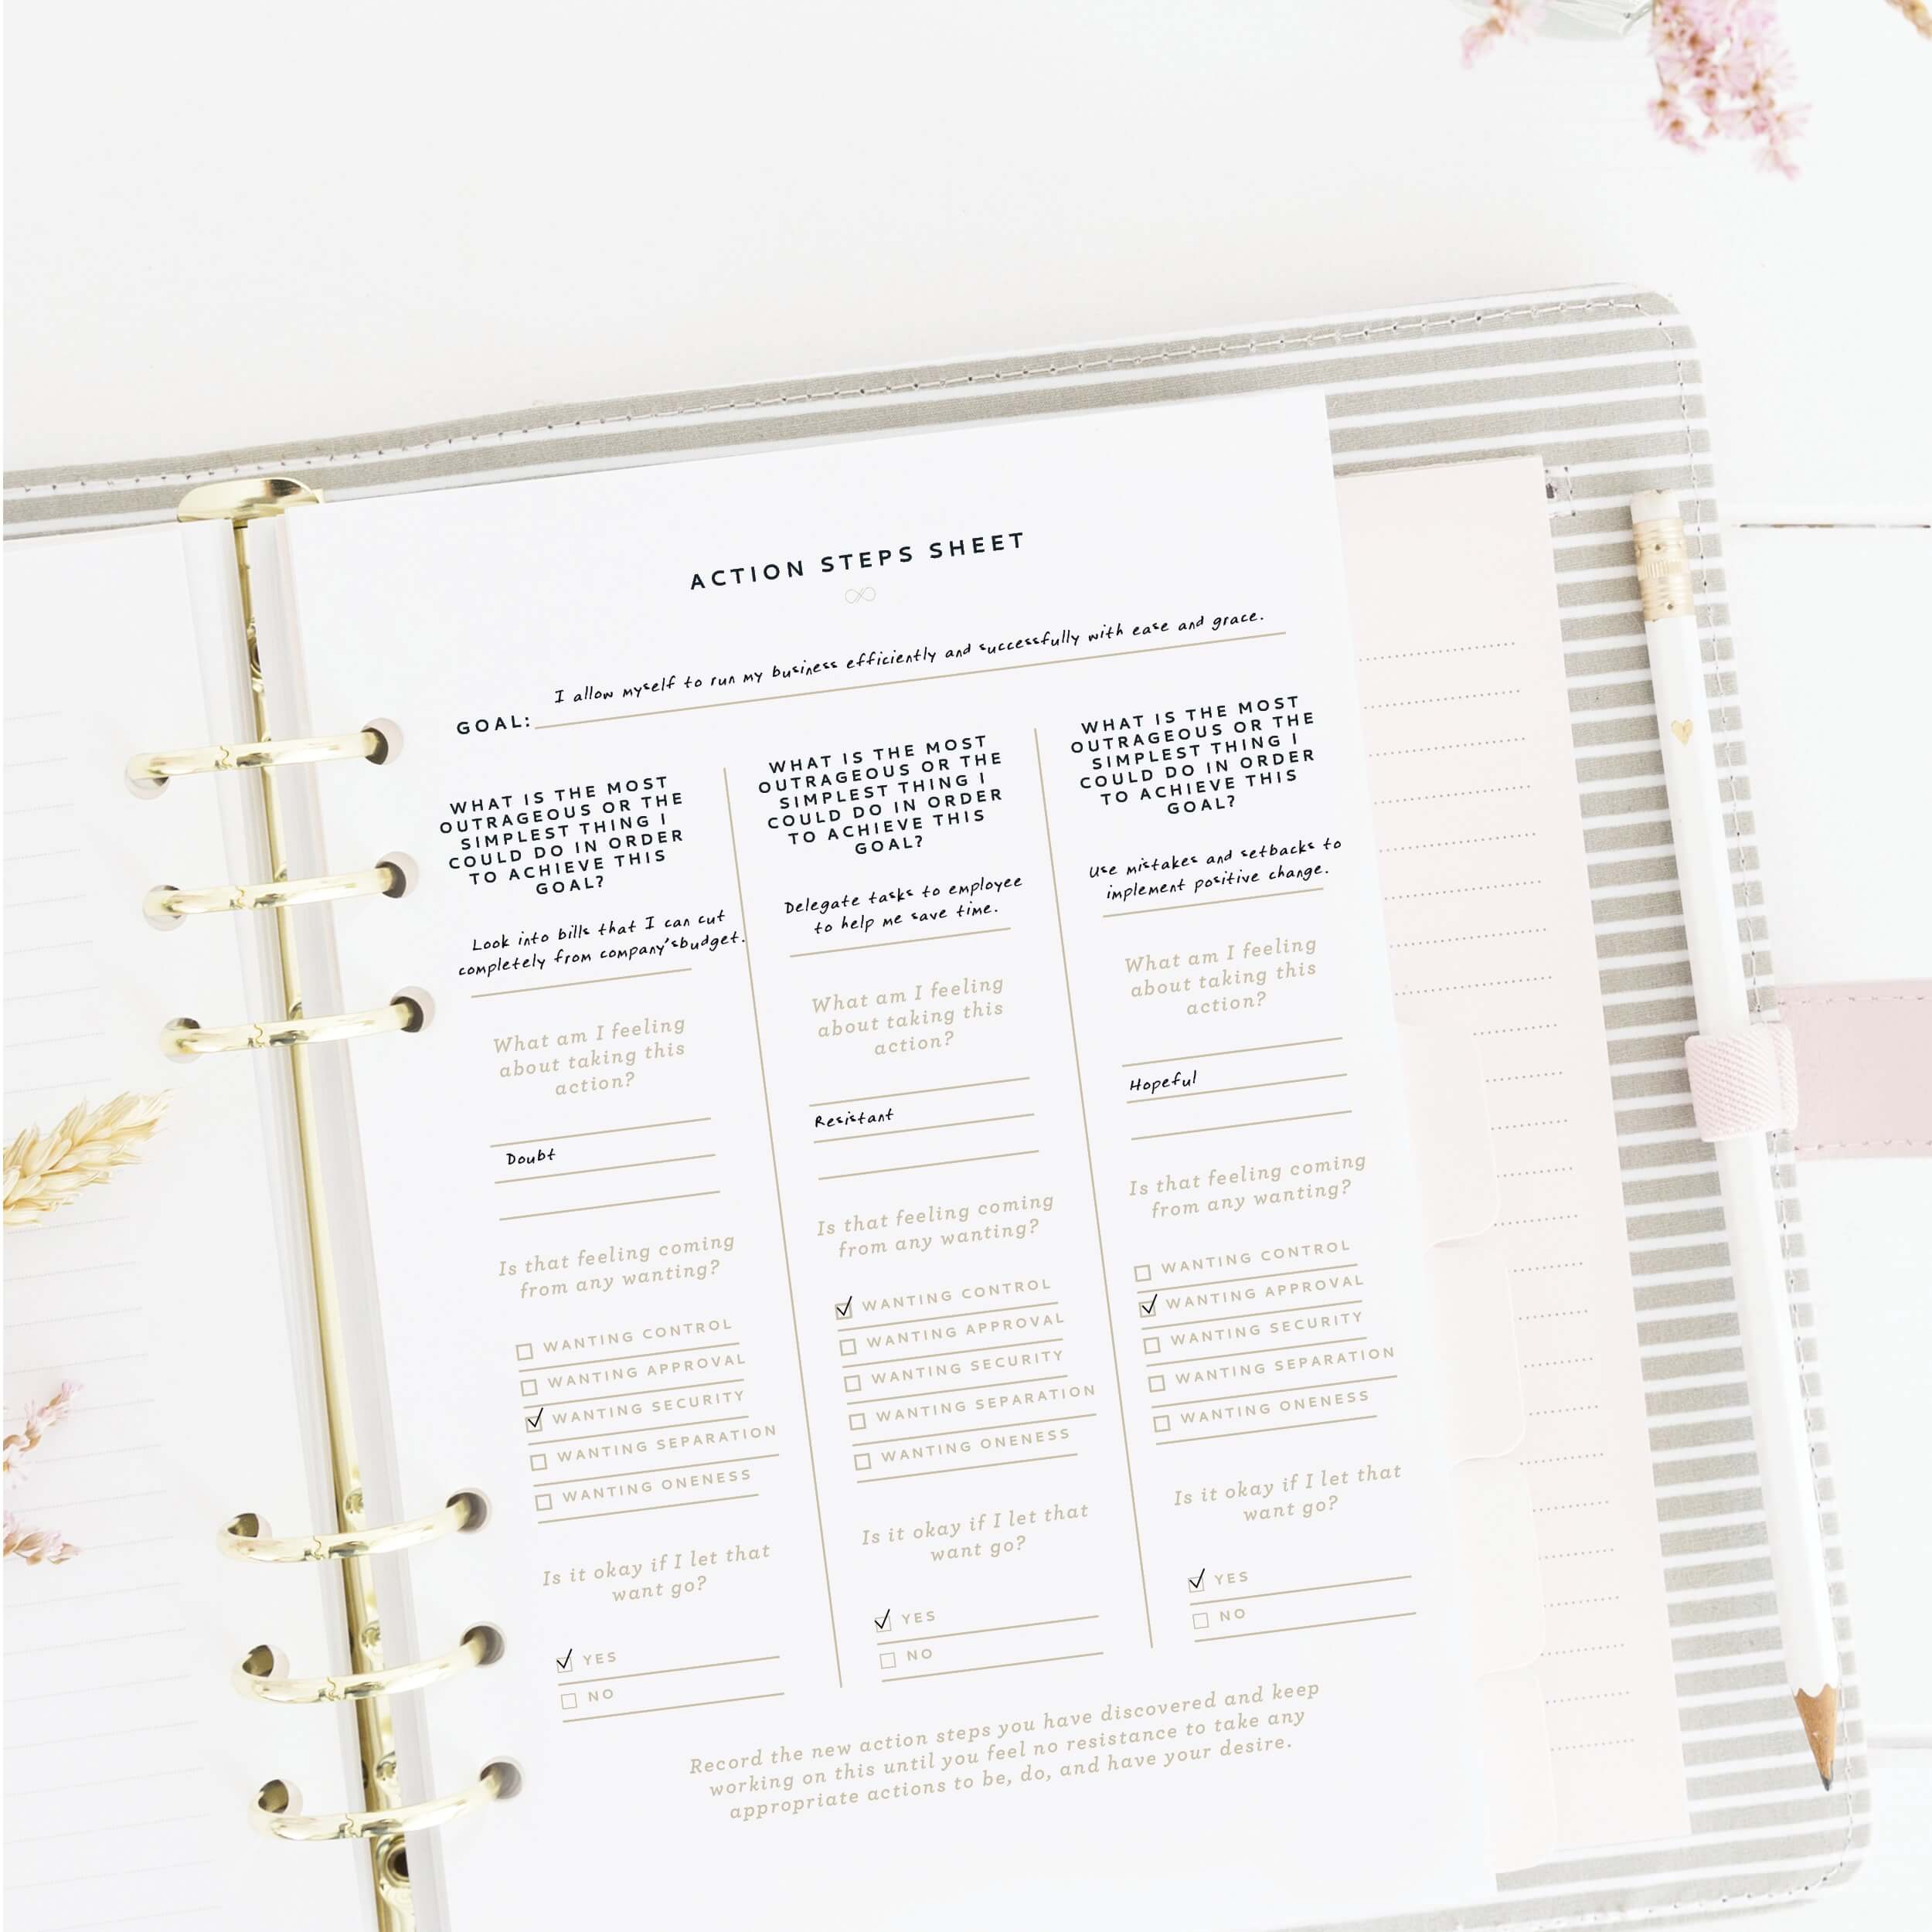 ACTION STEPS SHEET
GOAL: I allow myself to run my business efficiently and successfully with ease and grace.
WHAT IS THE MOST
OUTRAGEOUS OR THE
SIMPLEST THING I
COULD DO IN ORDER
TO ACHIEVE THIS
GOAL?
Look into bills that I can cut
completely from company'sbudget.
What am I feeling
about taking this
action?
Doubt
Is that feeling coming
from any wanting?
WANTING CONTROL
WANTING APPROVAL
WANTING SECURITY
WANTING SEPARATION
WANTING ONENESS
Is it okay if I let that
want go?
YES
NO
WHAT IS THE MOST
OUTRAGEOUS OR THE
SIMPLEST THING I
COULD DO IN ORDER
TO ACHIEVE THIS
GOAL?
Delegate tasks to employee
to help me save time.
What am I feeling
about taking this
action?
Resistant
Is that feeling coming
from any wanting?
WANTING CONTROL
WANTING APPROVAL
WANTING SECURITY
WANTING SEPARATION
WANTING ONENESS
Is it okay if I let that
want go?
YES
NO
WHAT IS THE MOST
OUTRAGEOUS OR THE
SIMPLEST THING I
COULD DO IN ORDER
TO ACHIEVE THIS
GOAL?
Use mistakes and setbacks to
implement positive change.
What am I feeling
about taking this
action?
Hopeful
Is that feeling coming
from any wanting?
WANTING CONTROL
WANTING APPROVAL
WANTING SECURITY
WANTING SEPARATION
WANTING ONENESS
Is it okay if I let that
want go?
YES
NO
Record the new action steps you have discovered and keep
working on this until you feel no resistance to take any
appropriate actions to be, do, and have your desire.